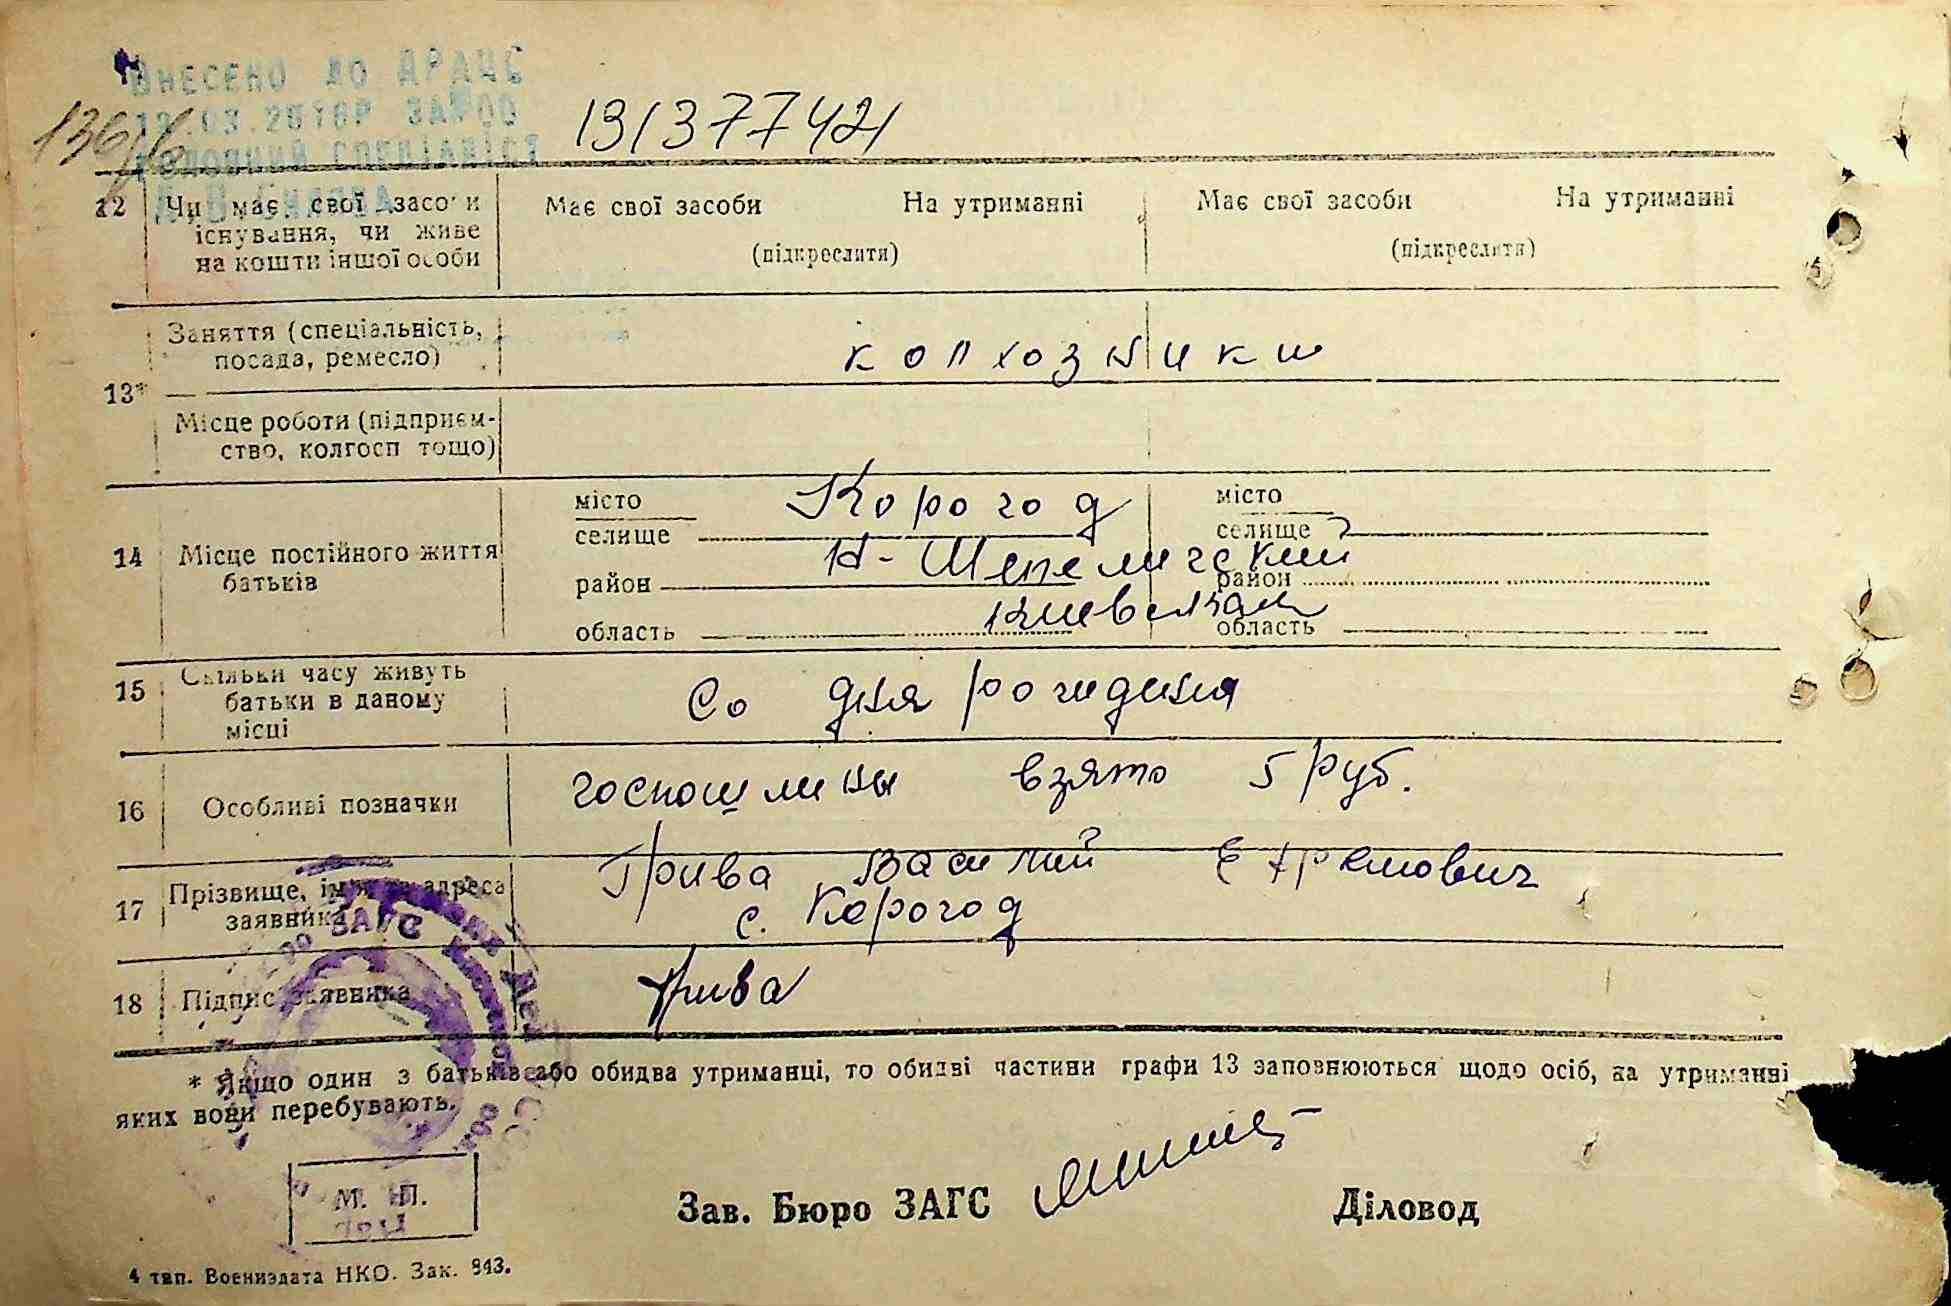 ВНЕСЕНО ДО ДРАЦС
13.03.2018Р
ГОЛОВНИЙ СПЕЦІАЛІСТ
136/6
131377421
12 Чи має свої засоби існування, чи живе на кошти іншої особи
Має свої засоби На утриманні
(підкреслити)
Має свої засоби На утриманні
(підкреслити)
13*
Заняття (спеціальність,
посада, ремесло)
колхозники
Місце роботи (підприєм-
ство, колгосп тощо)
14 Місце постійного життя
батьків
місто Корогод місто
селище селище
район Н-Шепелический район
область Киевская область
15 Скільки часу живуть
батьки в даному
місці
Со дня рождения
16 Особливі позначки
госпошлины взято 5 руб.
17 Прізвище, ім'я та адреса
заявника
Грива Василий Ефремович
с. Корогод
18 Підпис заявника
Грива
* Якщо один з батьків або обидва утриманці, то обидві частини графи 13 заповнюються щодо осіб, на утриманні
яких вони перебувають.
ЗАГС
М. П.
Зав. Бюро ЗАГС Діловод
4 тип. Воениздата НКО. Зак. 943.